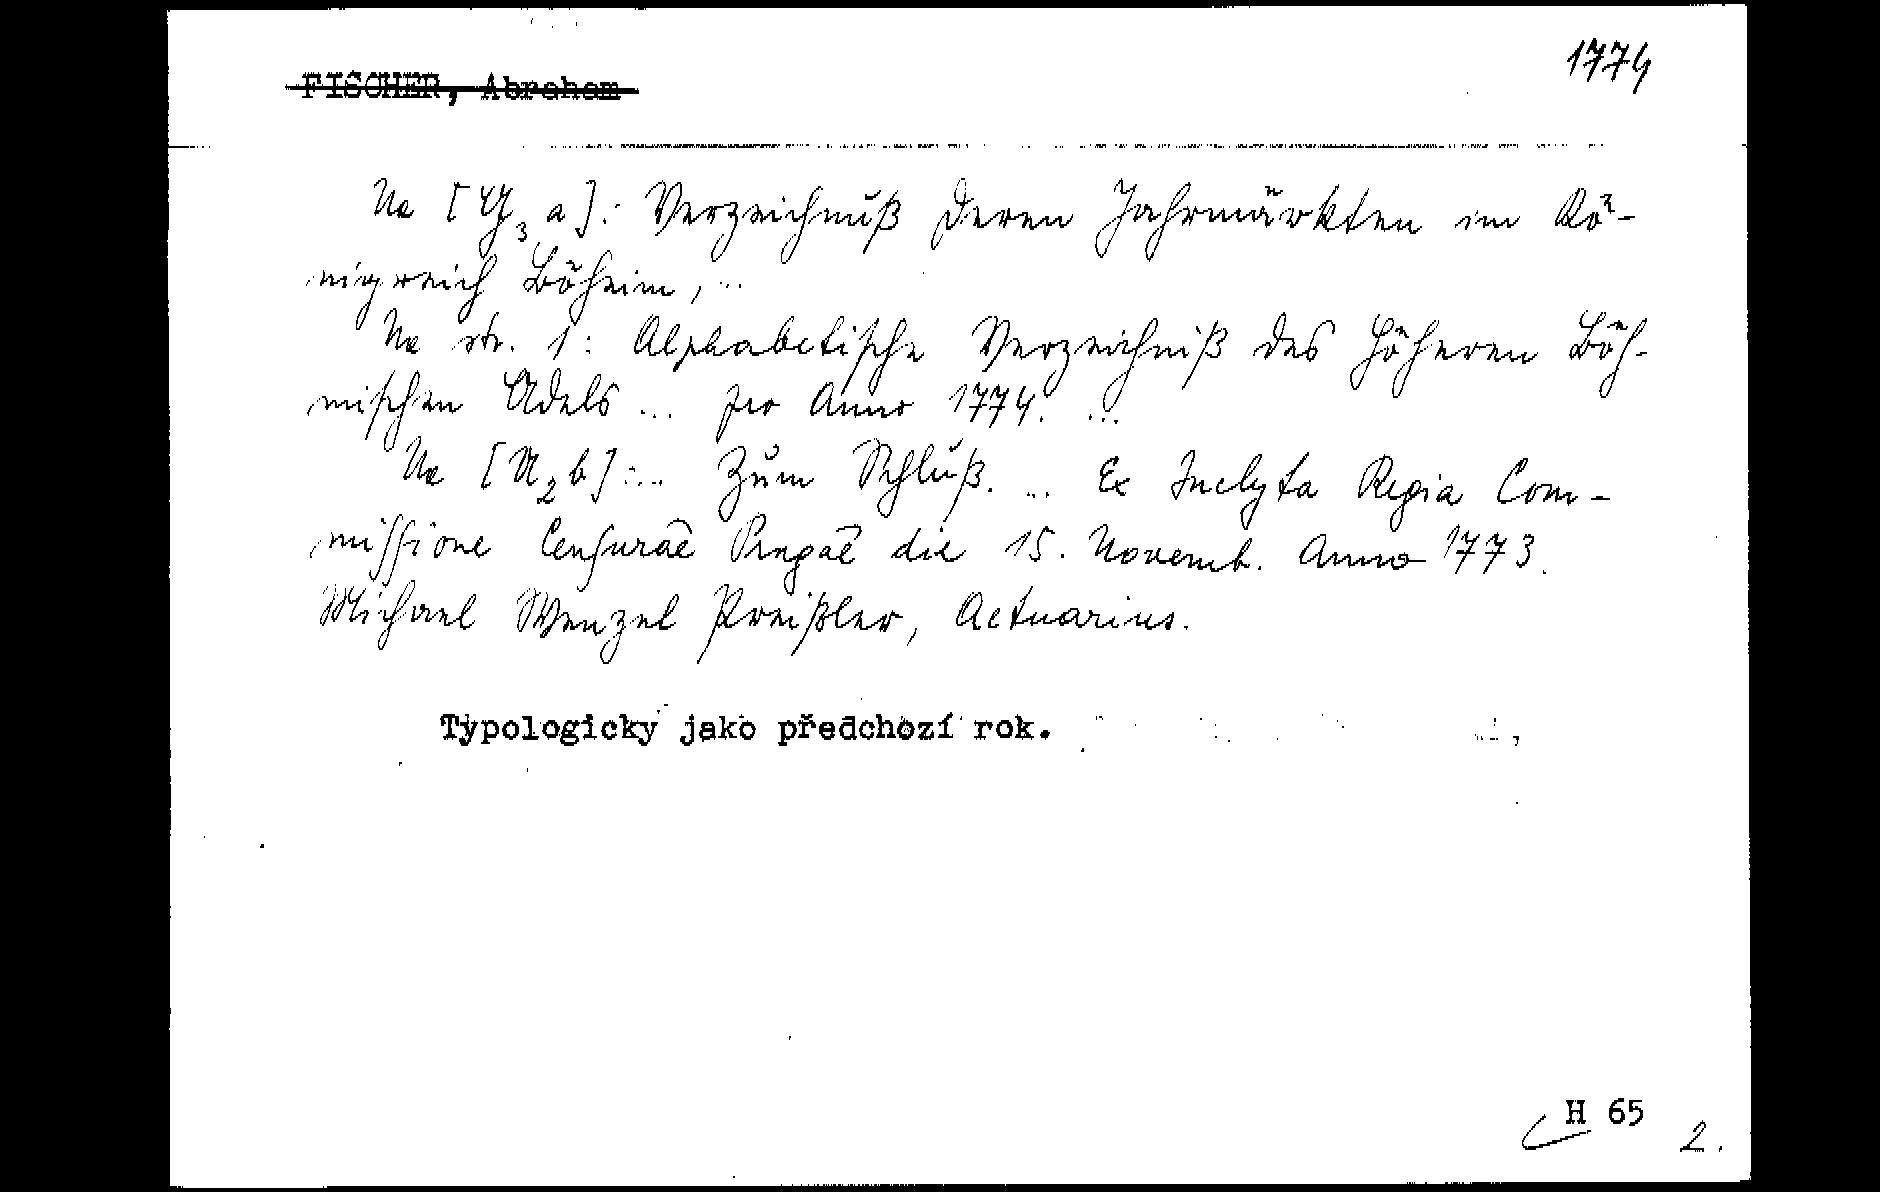 1774
FISCHER, Abraham
Na [Y₃a]: Verzeichnuß deren Jahrmärkten im Kö-
nigreich Böheim, ...
Na str. 1: Alphabetische Verzeichniß des Höheren Böh-
mischen Adels ... pro Anno 1774. ...
Na [A₂b]: ... Zum Schluß. ... Ex Inclyta Regia Com-
missione Censurae Pragae die 15. Novemb. Anno 1773.
Michael Wenzel Preißler, Actuarius.
Typologicky jako předchozí rok.
H 65
2.